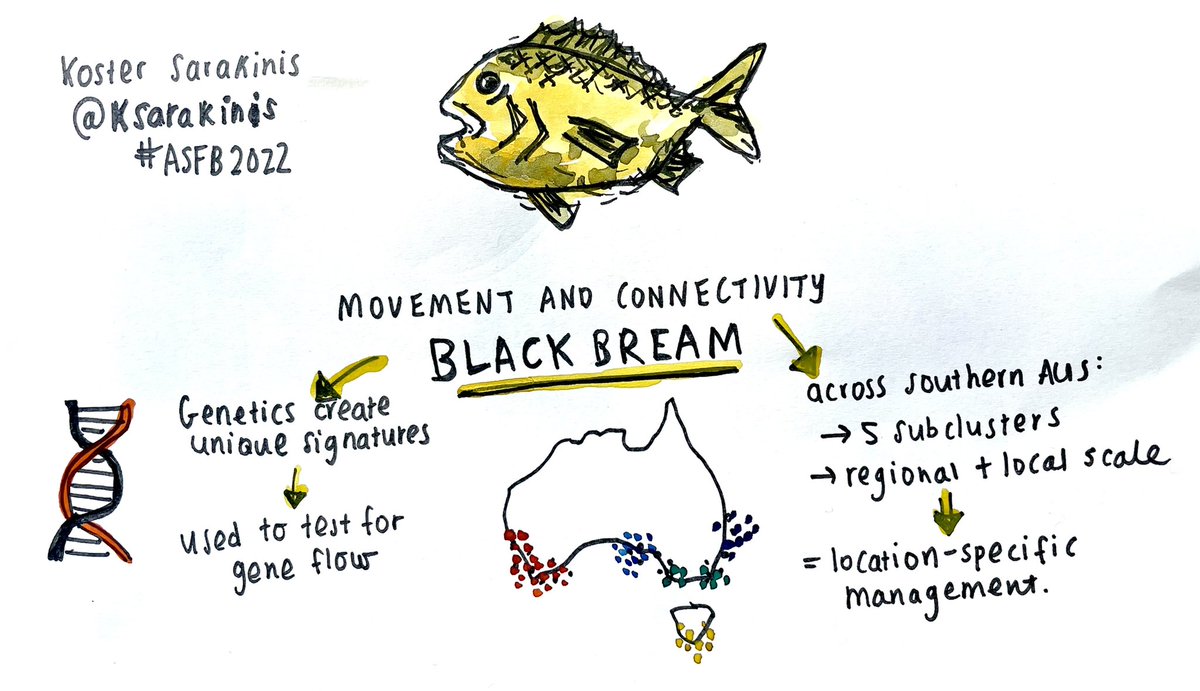 Koster Sarakinis
@Ksarakinis
#ASFB2022
MOVEMENT AND CONNECTIVITY
BLACK BREAM
Genetics create
unique signatures
used to test for
gene flow
across southern Aus:
→ 5 subclusters
→ regional + local scale
= location-specific
management.